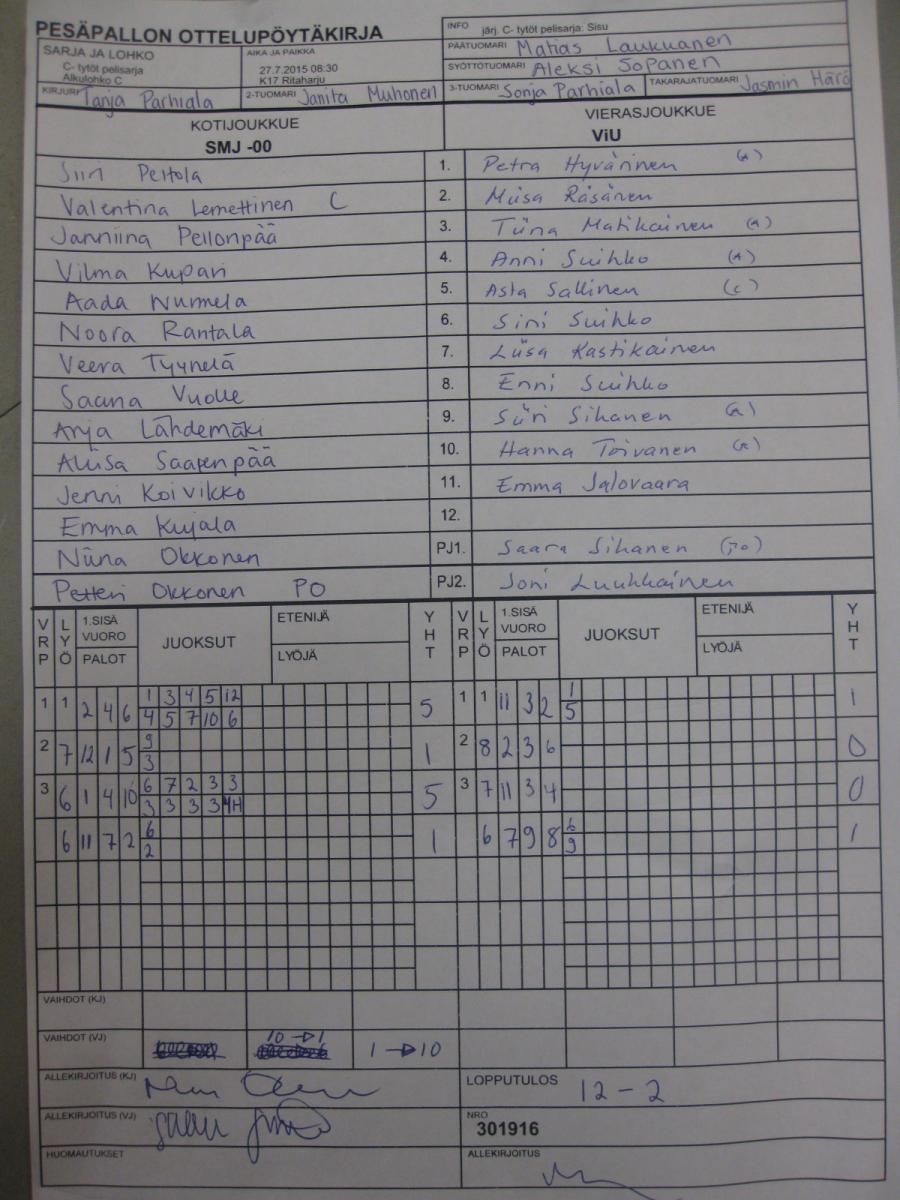 PESÄPALLON OTTELUPÖYTÄKIRJA
INFO järj. C- tytöt pelisarja: Sisu
SARJA JA LOHKO
C- tytöt pelisarja
Alkulohko C
AIKA JA PAIKKA
27.7.2015 08:30
K17 Ritaharju
PÄÄTUOMARI Matias Laukkanen
SYÖTTÖTUOMARI Aleksi Sopanen
KIRJURI Tanja Parhiala
2-TUOMARI Janita Muhonen
3-TUOMARI Sonja Parhiala
TAKARAJATUOMARI Jasmin Härö
KOTIJOUKKUE VIERASJOUKKUE
SMJ -00 ViU
Siiri Peltola 1. Petra Hyvärinen (A)
Valentina Lemettinen C 2. Miisa Räsänen
Janniina Pellonpää 3. Tiina Matikainen (A)
Vilma Kupari 4. Anni Suihko (A)
Aada Nurmela 5. Asta Sallinen (c)
Noora Rantala 6. Sini Suihko
Veera Tyynelä 7. Liisa Kastikainen
Saana Vuolle 8. Enni Suihko
Anja Lähdemäki 9. Siiri Sihanen (A)
Aliisa Saarenpää 10. Hanna Toivanen (A)
Jenni Koivikko 11. Emma Jalovaara
Emma Kujala 12.
Niina Okkonen PJ1. Saara Sihanen (PO)
Petteri Okkonen PO PJ2. Joni Luukkainen
VRP LYÖ 1.SISÄ VUORO PALOT JUOKSUT ETENIJÄ LYÖJÄ YHT VRP LYÖ 1.SISÄ VUORO PALOT JUOKSUT ETENIJÄ LYÖJÄ YHT
1 1 2 4 6 1 3 4 5 12 5 1 1 11 3 2 1 1
4 5 7 10 6 5
2 7 12 1 5 9 1 2 8 2 3 6 0
3
3 6 1 4 10 6 7 2 3 3 5 3 7 11 3 4 0
3 3 3 3 4H
6 11 7 2 6 1 6 7 9 8 6 1
2 9
VAIHDOT (KJ)
VAIHDOT (VJ) 10 → 1 1 → 10
ALLEKIRJOITUS (KJ)
LOPPUTULOS 12 - 2
ALLEKIRJOITUS (VJ)
NRO
301916
HUOMAUTUKSET
ALLEKIRJOITUS